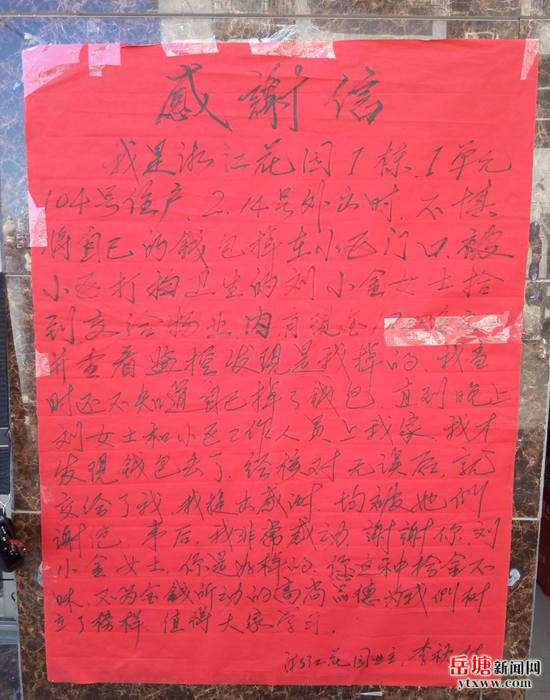 感謝信
我是浙江花园1栋1单元
104号住户,2.14号外出时,不慎
将自己的錢包掉在小区门口,被
小区打扫卫生的刘小金女士拾
到交给物业,内有现金
并查看监控发現是我掉的,我当
时还不知道自己掉了钱包,直到晚上
刘女士和小区工作人员上我家,我才
发現钱包丢了,经核对无误后,就
交给了我,我提出感谢,均被她们
谢绝,事后,我非常感动,謝謝你,刘
小金女士,你是好样的,你这种拾金不
昧,不为金錢所动的高尚品德,为我们树
立了榜样,值得大家学习.
浙江花园业主,李
岳塘新闻网
ytxww.com